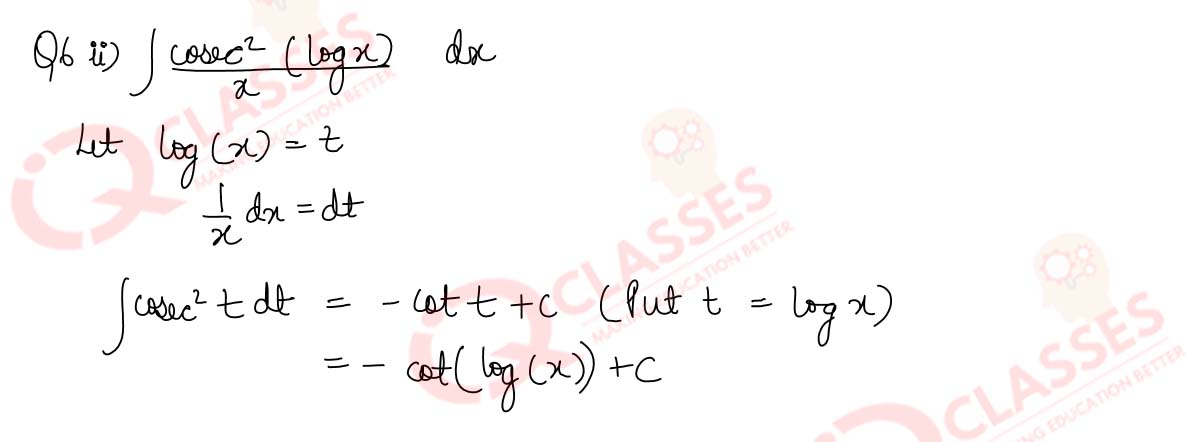 Q6 ii) ∫ cosec² (log x) / x dx
Let log (x) = t
1/x dx = dt
∫ cosec² t dt = - cot t + c (Put t = log x)
= - cot(log (x)) + c
IQ CLASSES
MAKING EDUCATION BETTER
IQ CLASSES
MAKING EDUCATION BETTER
IQ CLASSES
MAKING EDUCATION BETTER